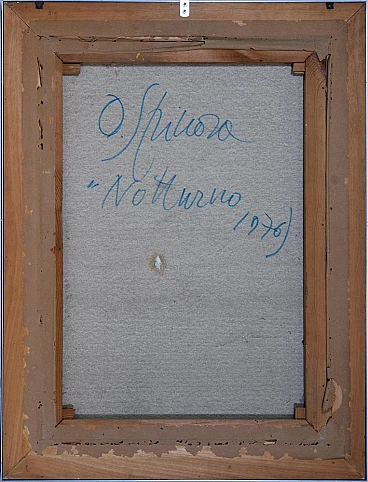 O. Spinosa
"Notturno
1976)